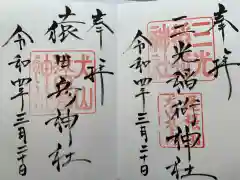 奉拝
三光稲荷神社
令和四年三月二十日
三光
奉拝
猿田彦神社
令和四年三月二十日
犬山